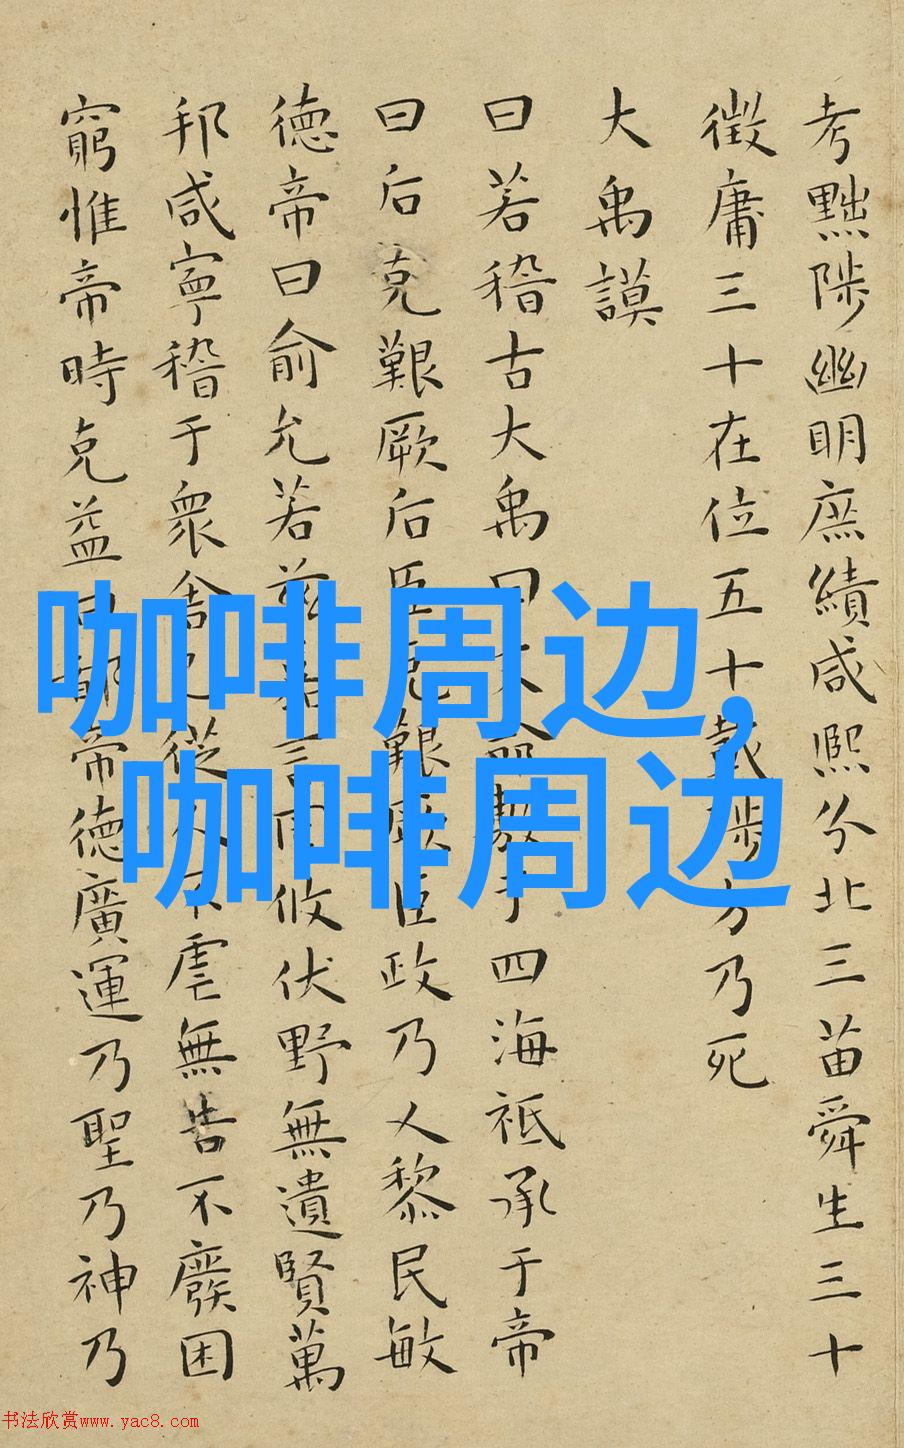 考黜陟幽明庶績咸熙分北三苗舜生三十
徵庸三十在位五十載陟方乃死
大禹謨
曰若稽古大禹曰文命敷于四海祗承于帝
曰后克艱厥后臣克艱厥臣政乃乂黎民敏
德帝曰俞允若茲嘉言罔攸伏野無遺賢萬
邦咸寧稽于衆舍己從人不虐無告不廢困
窮惟帝時克益曰都帝德廣運乃聖乃神乃
咖啡周边,
咖啡周边
书法欣赏www.yac8.com